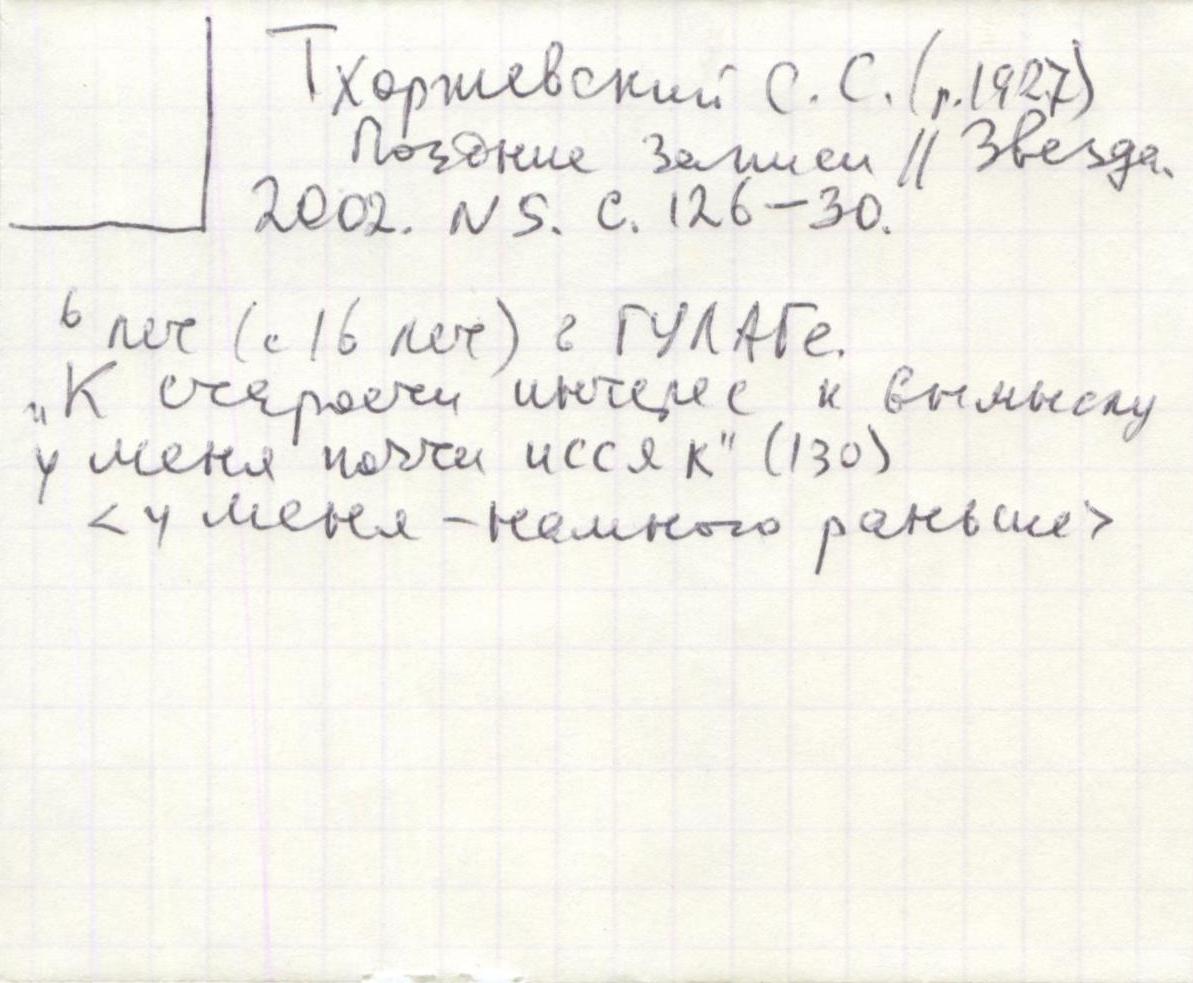 Тхоржевский С. С. (р. 1927)
Поздние записи // Звезда.
2002. N 5. С. 126–30.
6 лет (с 16 лет) в ГУЛАГе.
„К старости интерес к вымыслу
у меня почти иссяк" (130)
<у меня – намного раньше>